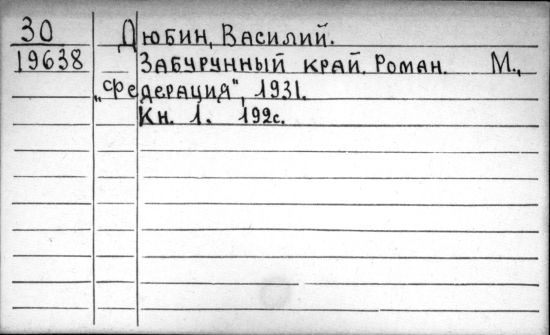 30 Дюбин, Василий.
19638 Забурунный край. Роман. М.,
„Федерация", 1931.
Кн. 1. 192с.